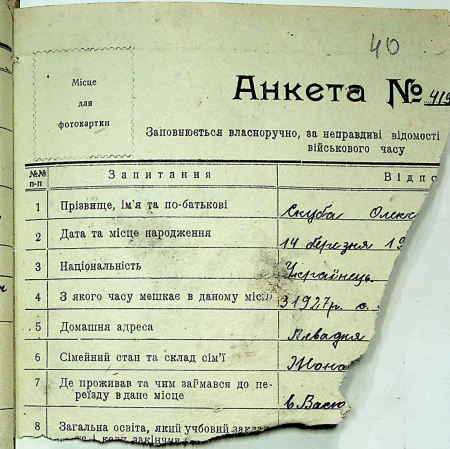 40
Місце
для
фотокартки
Анкета №
Заповнюється власноручно, за неправдиві відомості
військового часу
№№ п-п Запитання Відпо
1 Прізвище, ім'я та по-батькові Скуба Олекс
2 Дата та місце народження 14 березня 19
3 Національність Українець
4 З якого часу мешкає в даному місті З 1927р. с.
5 Домашня адреса Левадня
6 Сімейний стан та склад сім'ї Жона
7 Де проживав та чим займався до пе-
реїзду в дане місце в Васю
8 Загальна освіта, який учбовий заклад
та і коли закінчив